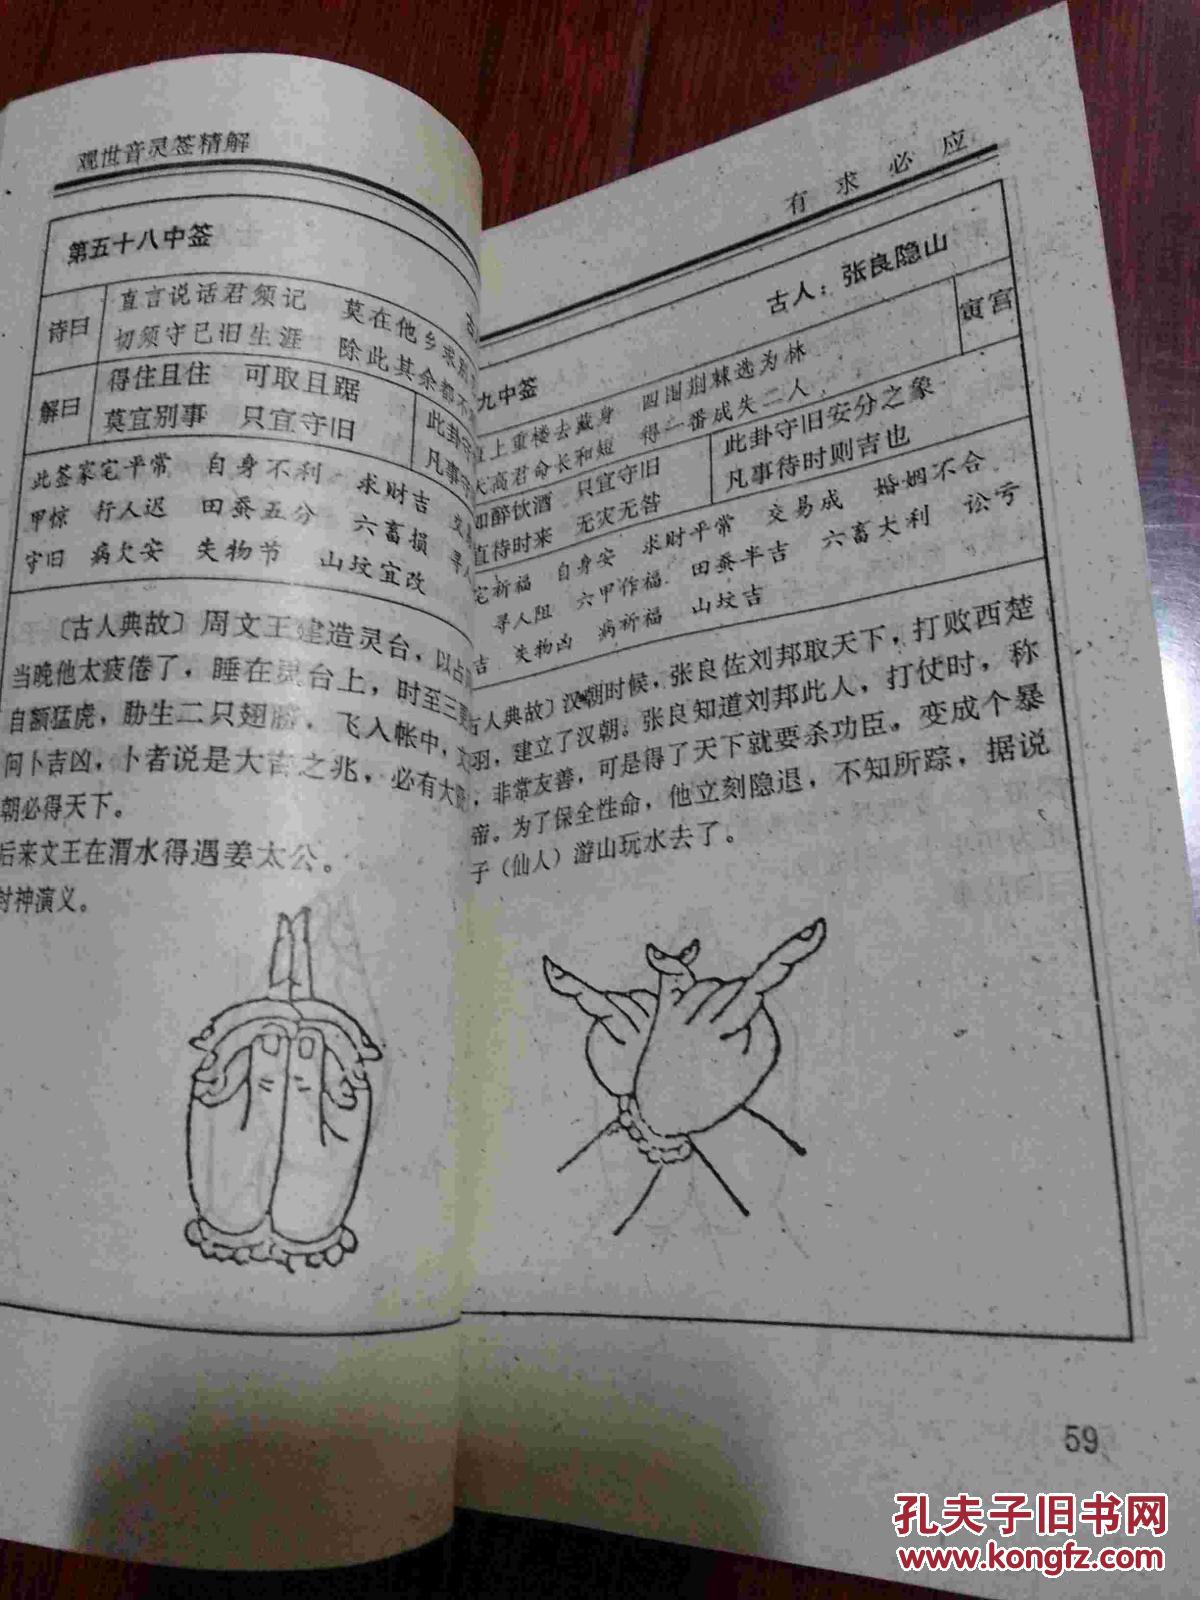 观世音灵签精解
第五十八中签
诗曰
直言说话君须记 莫在他乡求别
切须守已旧生涯 除此其余都不
解曰
得住且住 可取且踞
莫宜别事 只宜守旧
此卦守
凡事守
此签家宅平常 自身不利 求财吉 交易
甲惊 行人迟 田蚕五分 六畜损 寻人
守旧 病欠安 失物节 山坟宜改
〔古人典故〕周文王建造灵台，以占
当晚他太疲倦了，睡在灵台上，时至三更
自额猛虎，胁生二只翅膀，飞入帐中，文
问卜吉凶，卜者说是大吉之兆，必有大贤
朝必得天下。
后来文王在渭水得遇姜太公。
封神演义。
有求必应
九中签
古人：张良隐山
直上重楼去藏身 四围荆棘选为林
大高君命长和短 得一番成失二人
寅宫
如醉饮酒 只宜守旧
直待时来 无灾无咎
此卦守旧安分之象
凡事待时则吉也
宅祈福 自身安 求财平常 交易成 婚姻不合
寻人阻 六甲作福 田蚕半吉 六畜大利 讼亏
吉 失物凶 病祈福 山坟吉
古人典故〕汉朝时候，张良佐刘邦取天下，打败西楚
羽，建立了汉朝。张良知道刘邦此人，打仗时，称
；非常友善，可是得了天下就要杀功臣。变成个暴
帝。为了保全性命，他立刻隐退，不知所踪，据说
子（仙人）游山玩水去了。
59
孔夫子旧书网
www.kongfz.com